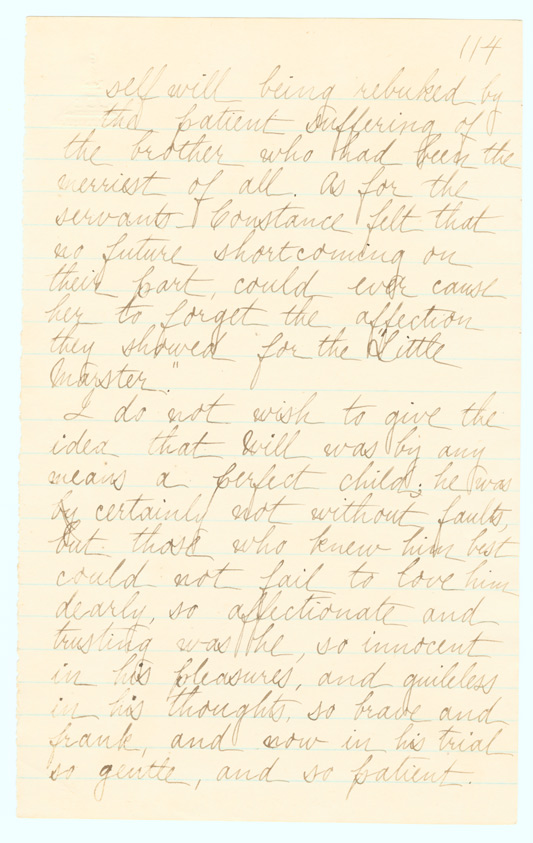 114
self will being rebuked by
the patient suffering of
the brother who had been the
merriest of all. As for the
servants Constance felt that
no future shortcoming on
their part, could ever cause
her to forget the affection
they showed for the "Little
Marster."
I do not wish to give the
idea that Will was by any
means a perfect child; he was
by certainly not without faults,
but those who knew him best
could not fail to love him
dearly, so affectionate and
trusting was he, so innocent
in his pleasures, and guileless
in his thoughts, so brave and
frank, and now in his trial
so gentle, and so patient.